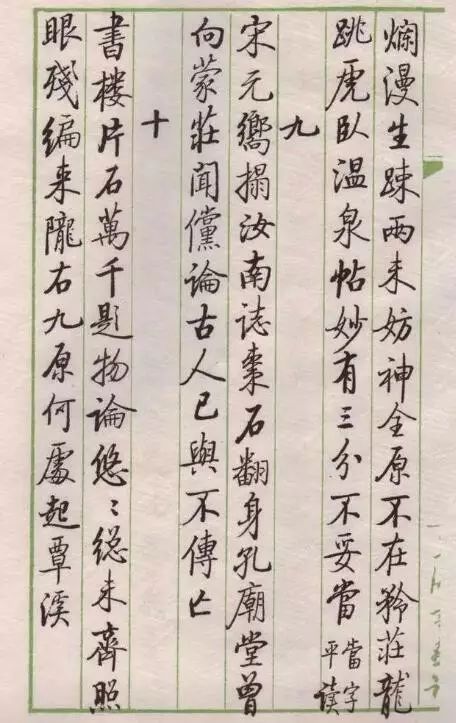 爛漫生疎兩未妨神全原不在矜莊龍
跳虎臥温泉帖妙有三分不妥當
當字
平读
九
宋元嚮搨汝南誌棗石翻身孔廟堂曾
向蒙莊聞儻論古人已與不傳亡
十
書樓片石萬千題物論悠〻總未齊照
眼殘編来隴右九原何處起覃溪